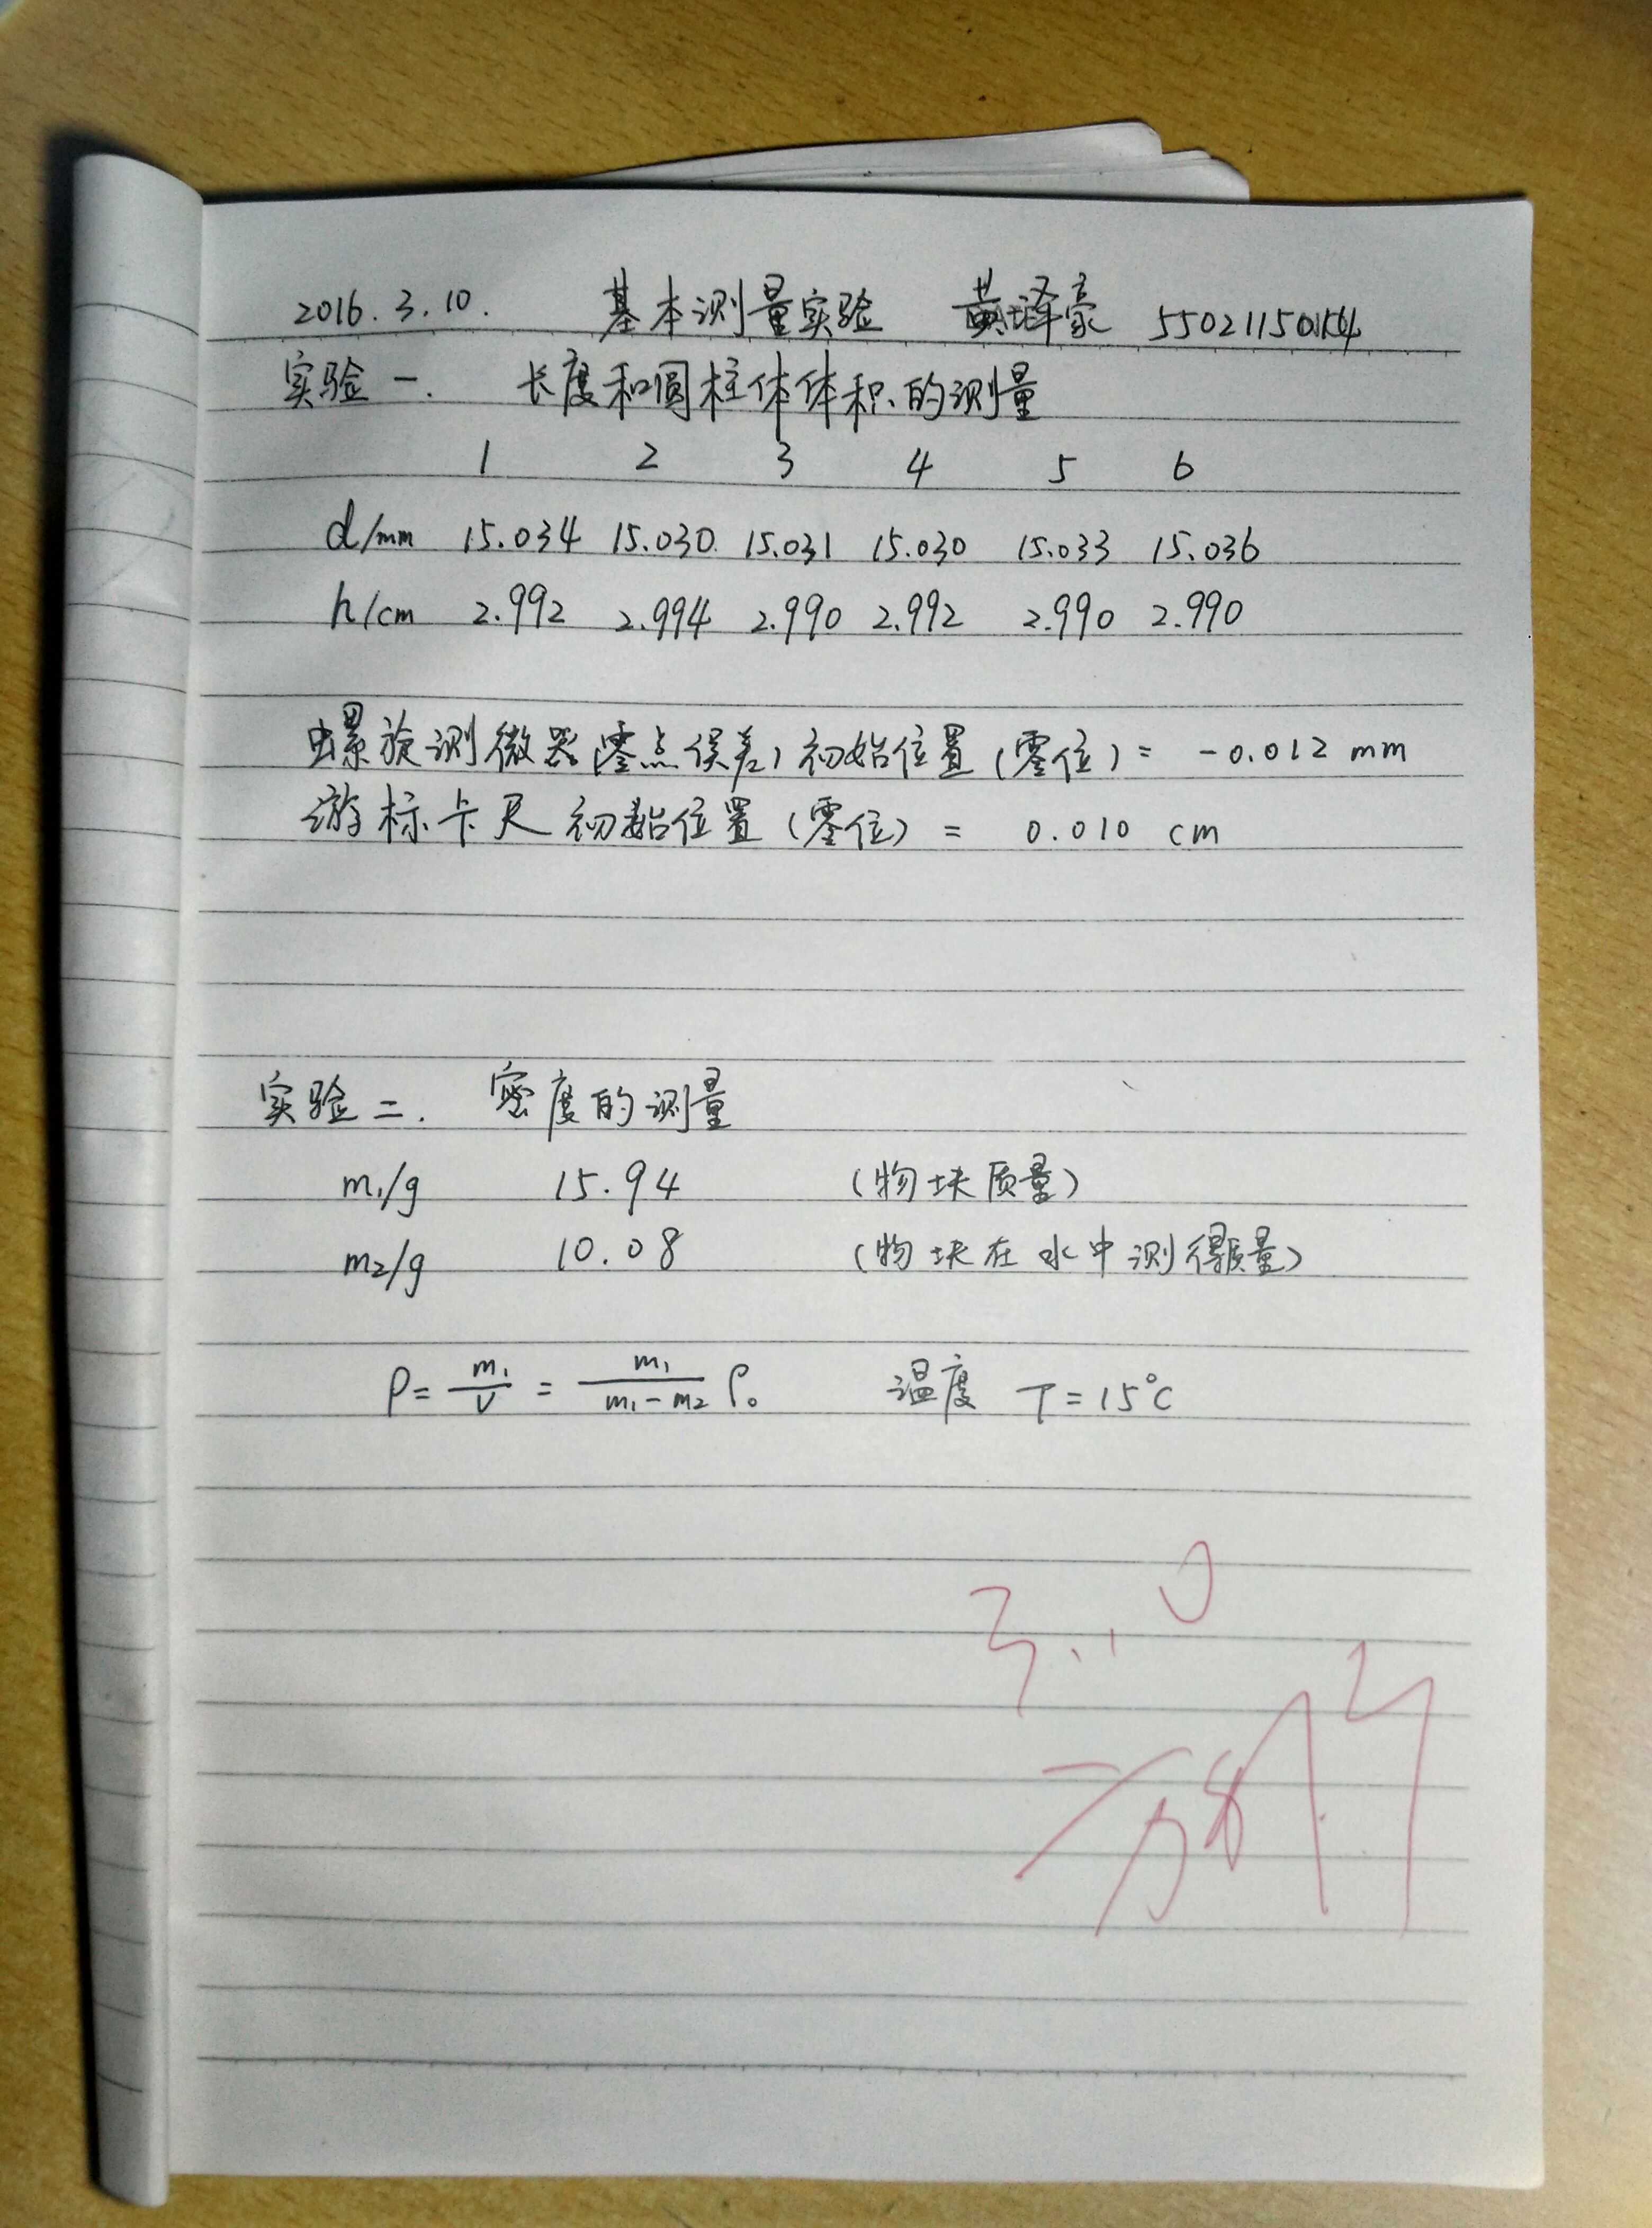 2016.3.10. 基本测量实验 黄泽豪 5502115014
实验一. 长度和圆柱体体积的测量
1 2 3 4 5 6
d/mm 15.034 15.030 15.031 15.030 15.033 15.036
h/cm 2.992 2.994 2.990 2.992 2.990 2.990
螺旋测微器(零点误差)初始位置(零位) = -0.012 mm
游标卡尺初始位置(零位) = 0.010 cm
实验二. 密度的测量
m₁/g 15.94 (物块质量)
m₂/g 10.08 (物块在水中测得质量)
ρ = m₁/V = m₁/(m₁-m₂) ρ₀ 温度 T=15°C
3.10